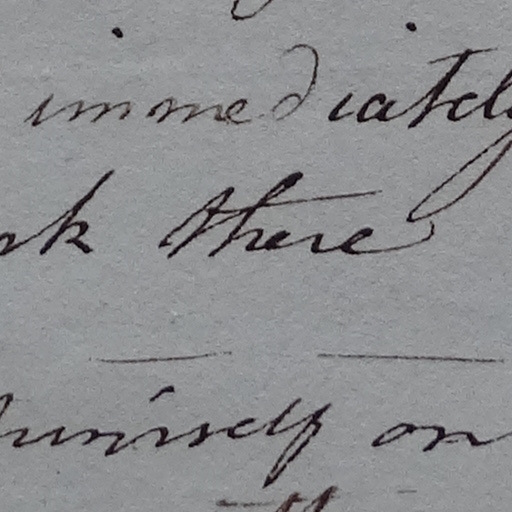 immediately
there
himself on